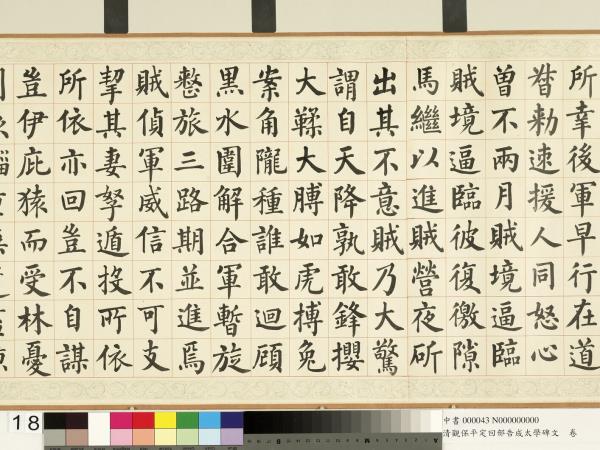 所幸後軍早行在道
督勅速援人同怒心
曾不兩月賊境逼臨
賊境逼臨彼復徼隙
馬繼以進賊營夜斫
出其不意賊乃大驚
謂自天降孰敢鋒攖
大鞣大膊如虎搏兔
案角隴種誰敢迴顧
黑水圍解合軍暫旋
整旅三路期並進焉
賊偵軍威信不可支
挈其妻孥遁投所依
所依亦回豈不自謀
豈伊庇猿而受林憂
18
中書 000043 N000000000
清觀保平定回部告成太學碑文 卷